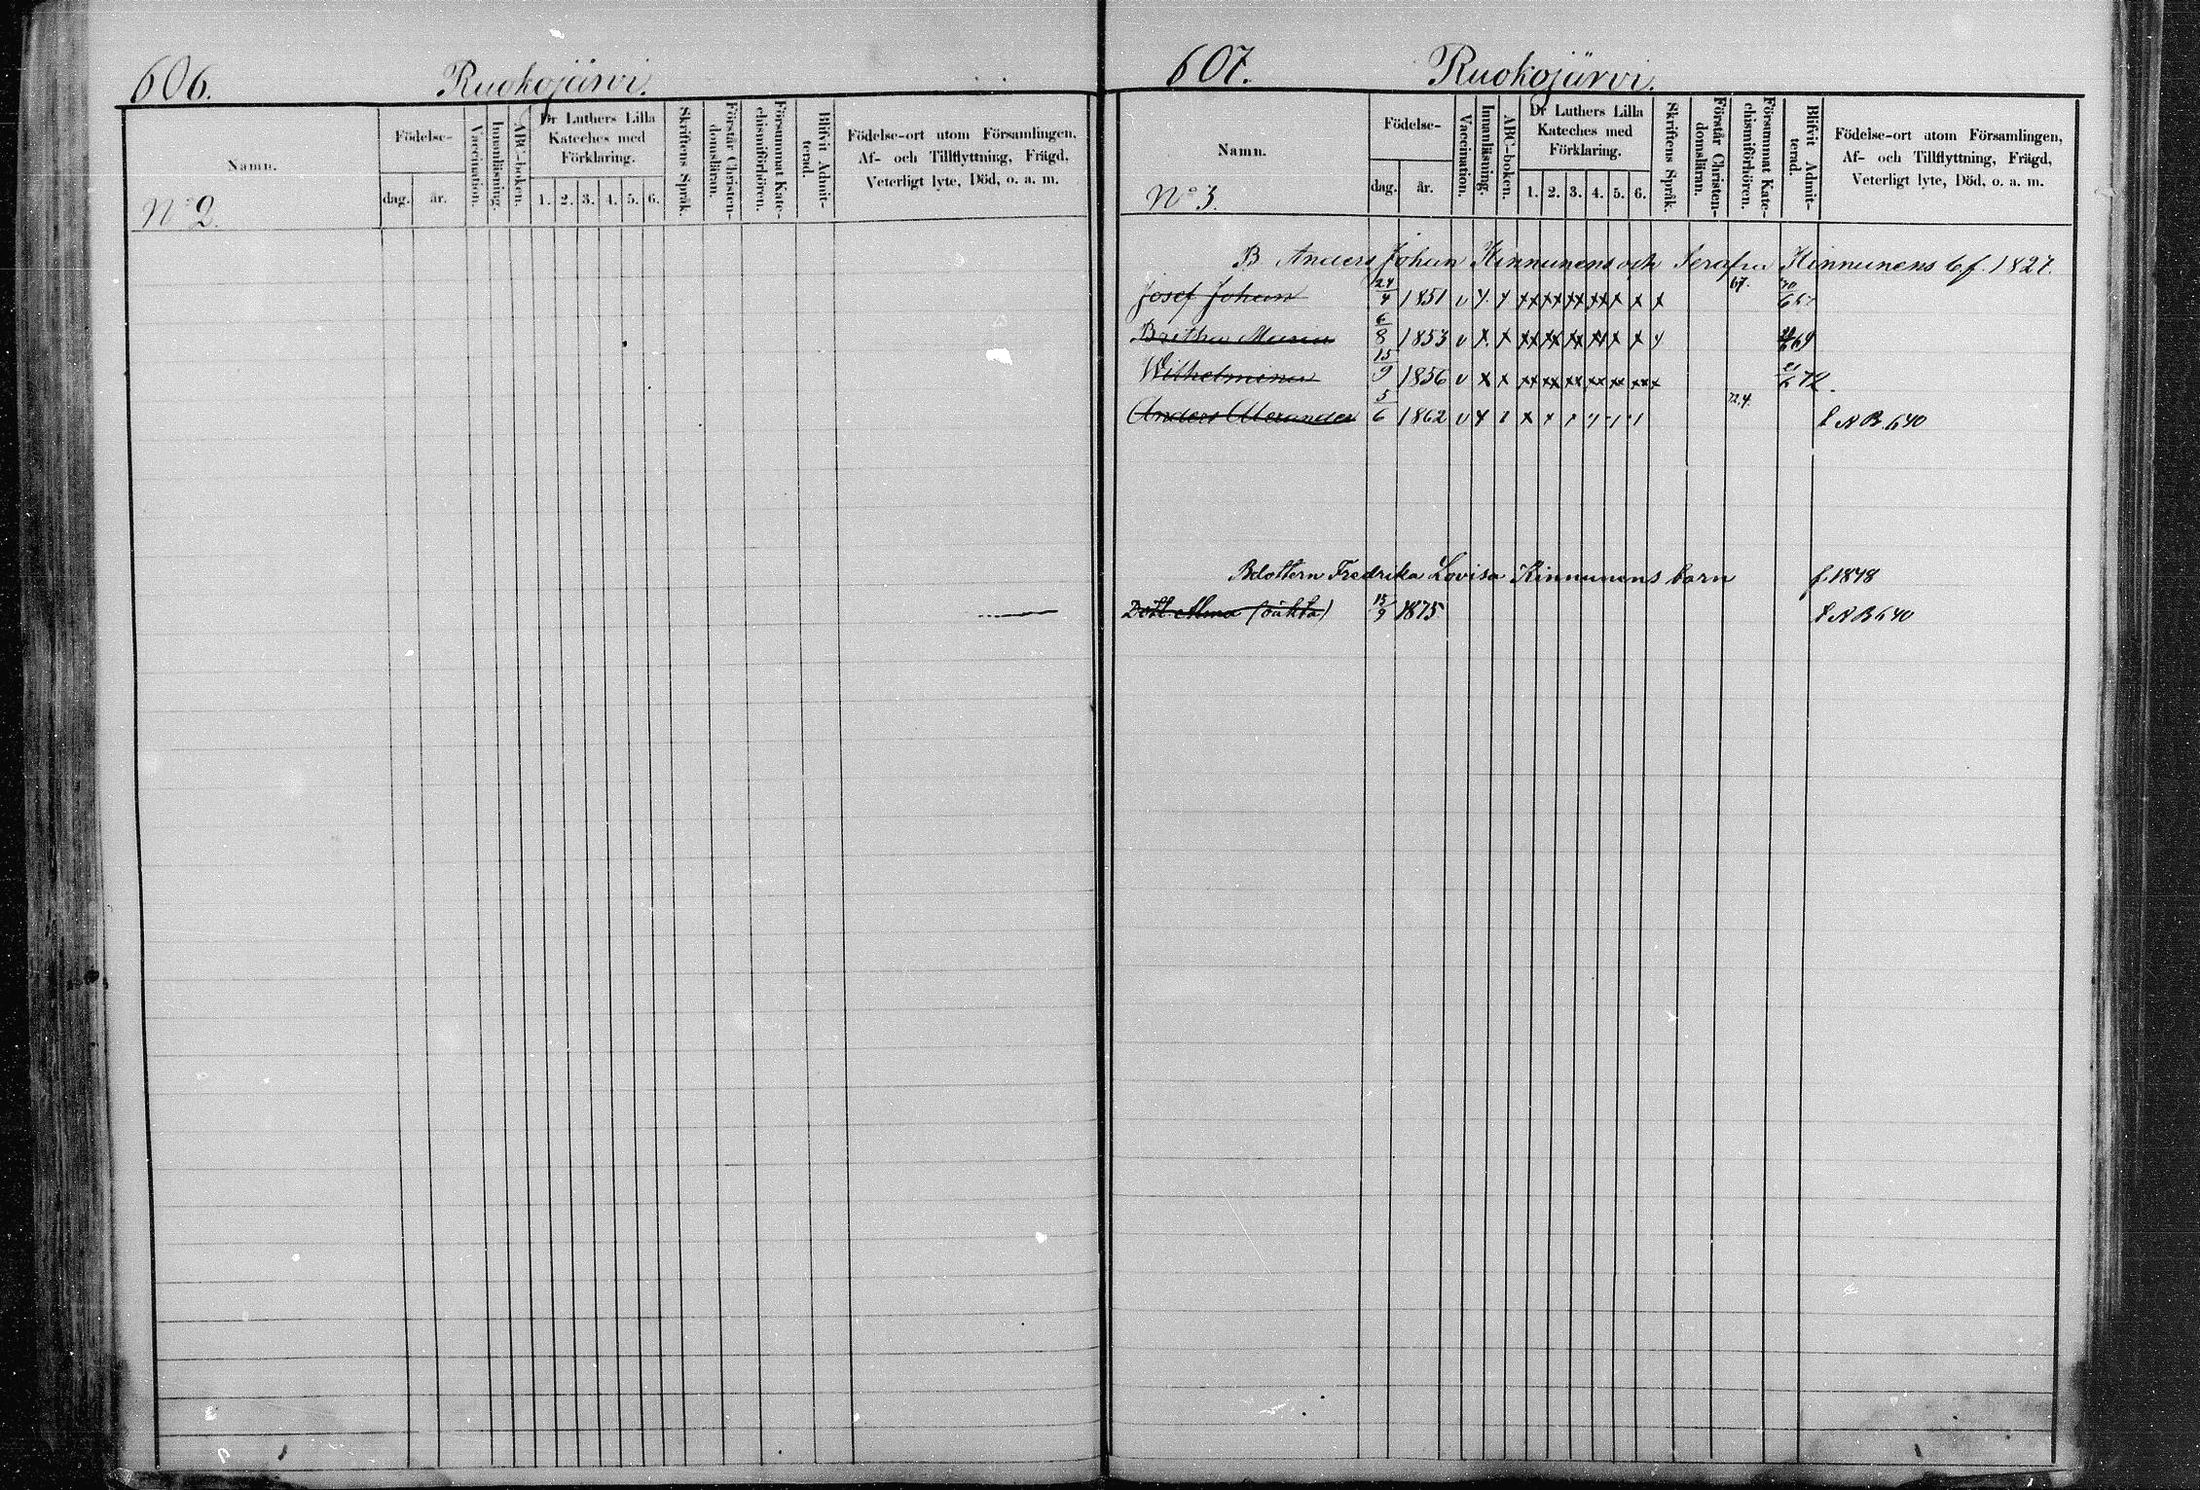 606. Ruokojärvi.
Namn.
No 2.
Födelse-
dag. år.
Vaccination.
Innanläsning.
ABC-boken.
Dr Luthers Lilla
Kateches med
Förklaring.
1. 2. 3. 4. 5. 6.
Skriftens Språk.
Förstår Christen-
domsläran.
Försummat Kate-
chismiförhören.
Blifvit Admit-
terad.
Födelse-ort utom Församlingen,
Af- och Tillflyttning, Frägd,
Veterligt lyte, Död, o. a. m.
607. Ruokojärvi.
Namn.
No 3.
Födelse-
dag. år.
Vaccination.
Innanläsning.
ABC-boken.
Dr Luthers Lilla
Kateches med
Förklaring.
1. 2. 3. 4. 5. 6.
Skriftens Språk.
Förstår Christen-
domsläran.
Försummat Kate-
chismiförhören.
Blifvit Admit-
terad.
Födelse-ort utom Församlingen,
Af- och Tillflyttning, Frägd,
Veterligt lyte, Död, o. a. m.
B Anders Johan Kinnunens och Serafia Kinnunens b f. 1827.
Josef Johan 24/4 1851 v x x xx xx xx xx x x x 67.
Britha Maria 6/8 1853 v x x xx xx xx xx x x x 69
Wilhelmina 15/9 1856 v x x xx xx xx xx xx xx x 72.
Anders Alexander 5/6 1862 v x 72,4. NB. 640
Bdottern Fredrika Lovisa Kinnunens barn f. 1848
Dott Alma (oäkta) 15/9 1875 NB 640